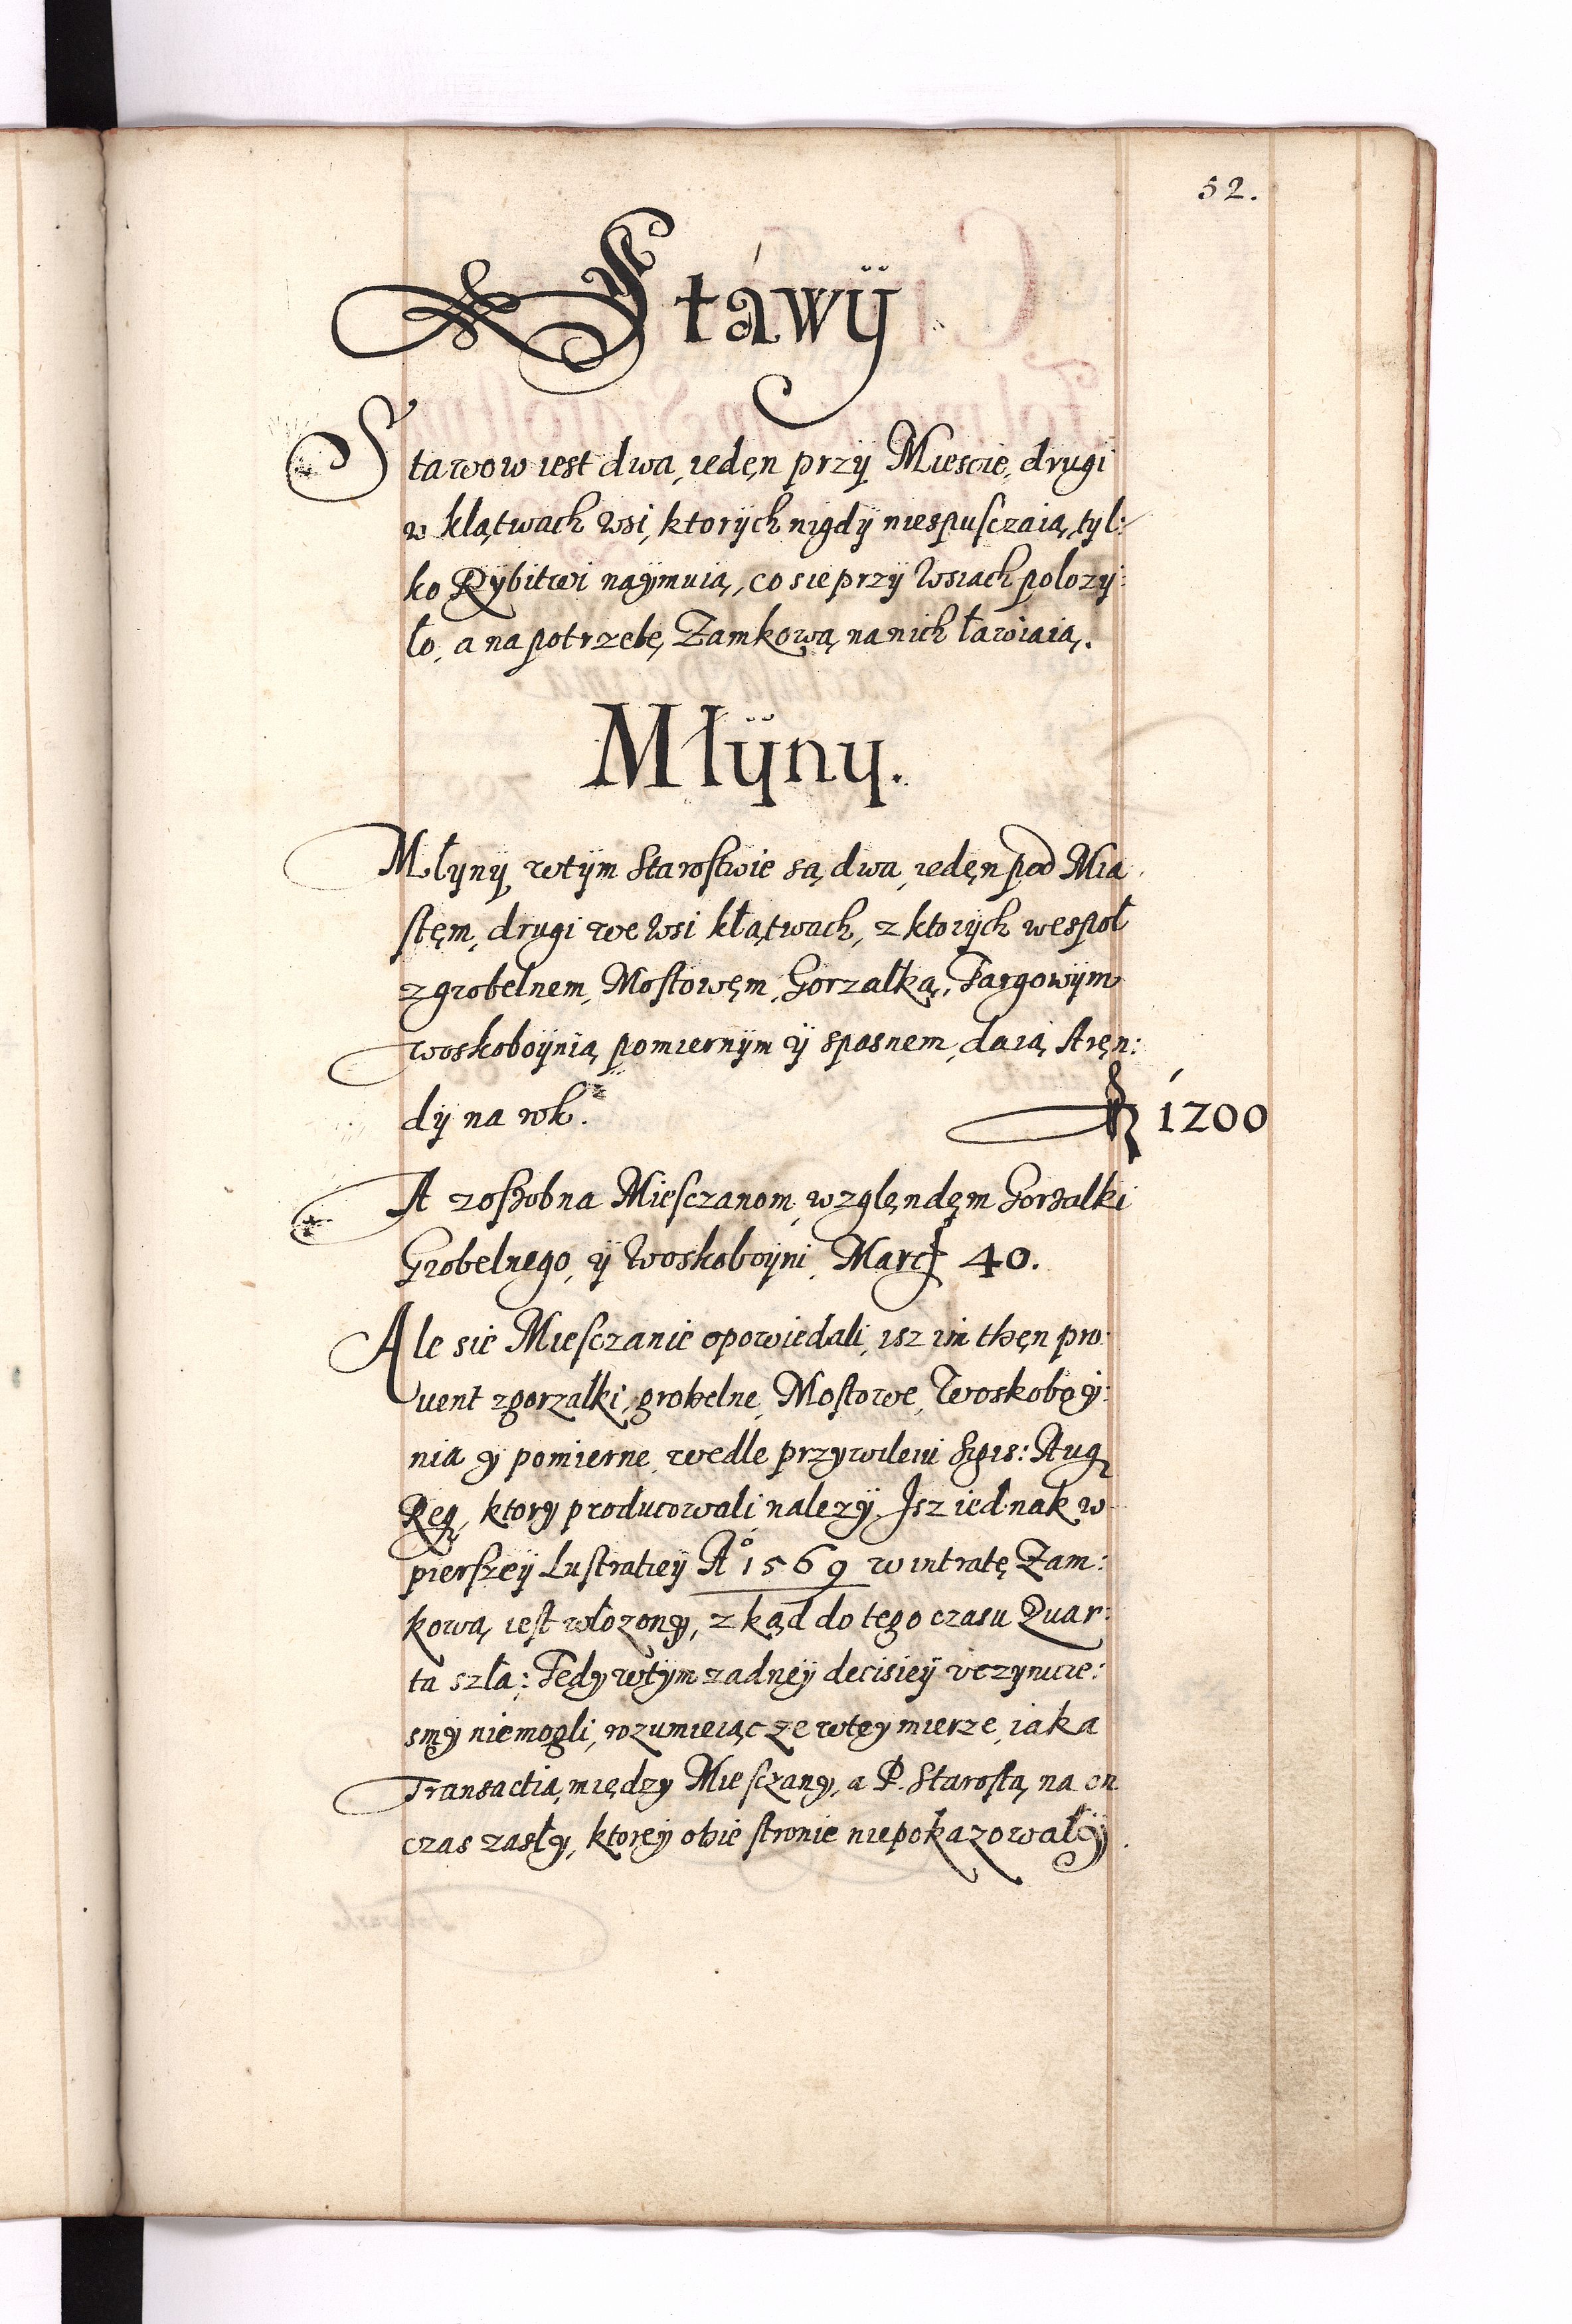 52.
Stawÿ
Stawow iest dwa, ieden przÿ Miescie, drugi
w klątwach wsi, ktorÿch nigdÿ niespusczaią, tyl:
ko Rÿbitwi naÿmuią, co sie przÿ wsiach polozÿ:
ło, a na potrzebę Zamkową na nich ławiaią.
Młÿny.
Młÿnÿ wtÿm Starostwie są dwa, ieden pod Mia
stęm, drugi we wsi kłątwach, z ktorÿch wespoł
z grobelnem, Mostowęm, Gorzałką, Targowÿm
woskoboÿnią, pomiernÿm ÿ spasnem, daią Aręn:
dÿ na rok.
fl 1200
A zoszobna Miesczanom, wzglęndęm Gorzalki
Grobelnego, ÿ woskoboÿni, Marc 40.
Ale sie Miesczanie opowiedali, isz im thęn pro:
uent z gorzalki, grobelne, Mostowe, Woskoboÿ:
nia ÿ pomierne, wedle przywileiu Sigis: Aug
Reg, ktory producowali, nalezÿ. Isz iednak w
pierszeÿ Lustratieÿ Aº 1569 w intratę Zam:
kową, iest włozonÿ, z kąd do tego czasu Quar:
ta szła: Tedy wtÿm zadneÿ decisieÿ vczynicie:
smÿ niemogli, rozumieiąc ze wteÿ mierze, iaka
Transactia, między Miesczanÿ, a P. Starostą, na on
czas zasłÿ, ktoreÿ obie stronie niepokazowałÿ.